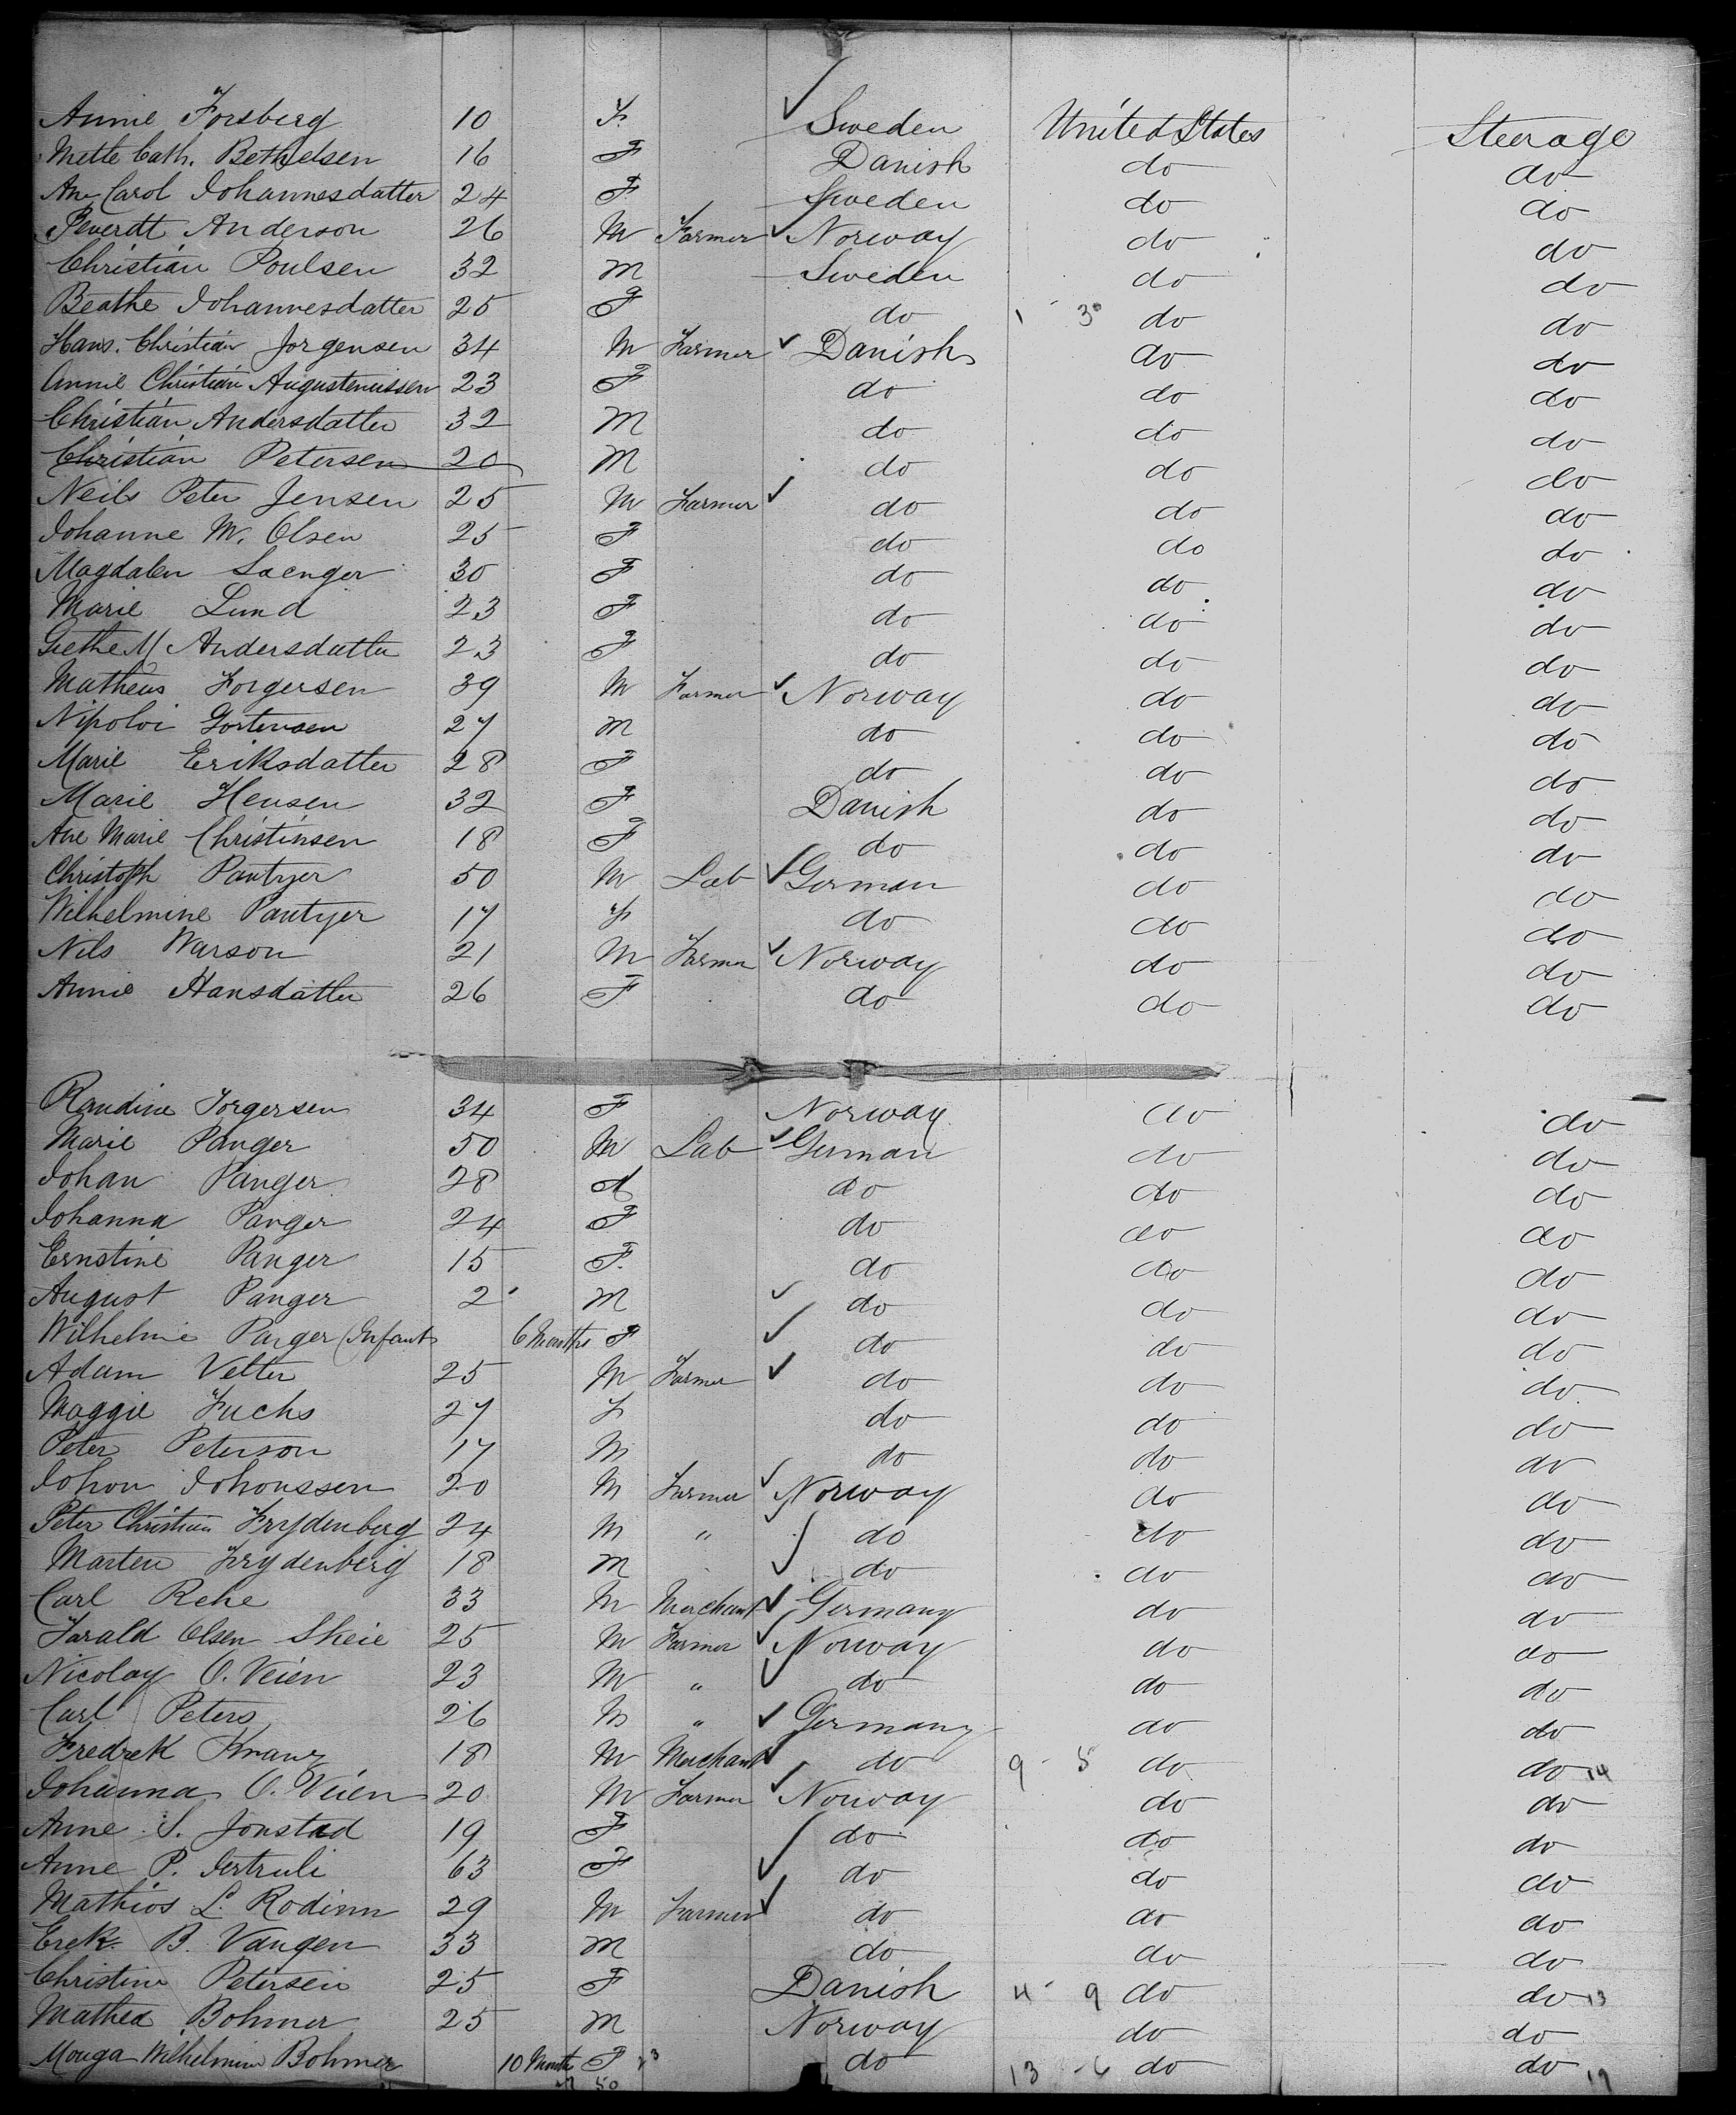 Annie Forsberg 10 F. Sweden United States Steerage
Mette Cath. Bethelsen 16 F Danish do do
An Carol Johannesdatter 24 F Sweden do do
Peverdt Anderson 26 M Farmer Norway do do
Christian Poulsen 32 M Sweden do do
Beathe Johannesdatter 25 F do 1 30 do do
Hans. Christian Jorgensen 34 M Farmer Danish do do
Annie Christian Augustenussen 23 F do do do
Christian Andersdatter 32 M do do do
Christian Petersen 20 M do do do
Neils Peter Jensen 25 M Farmer do do do
Johanne M. Olsen 25 F do do do
Magdalen Saenger 30 F do do do
Marie Lund 23 F do do do
Grethe M Andersdatter 23 F do do do
Matheus Forgersen 39 M Farmer Norway do do
Nipoloi Gortensen 27 M do do do
Marie Eriksdatter 28 F do do do
Marie Hensen 32 F Danish do do
Ane Marie Christinsen 18 F do do do
Christoph Pantzer 50 M Lab German do do
Wilhelmine Pantzer 17 F do do do
Nils Warson 21 M Farmer Norway do do
Annie Hansdatter 26 F do do do
Randine Torgersen 34 F Norway do do
Marie Panger 50 M Lab German do do
Johan Panger 28 M do do do
Johanna Panger 24 F do do do
Ernstine Panger 15 F. do do do
August Panger 2 M do do do
Wilhelmie Panger (Infant 6 Months F do do do
Adam Velter 25 M Farmer do do do
Maggie Fuchs 27 F do do do
Peter Peterson 17 M do do do
Johon Johonssen 20 M Farmer Norway do do
Peter Christian Frydenberg 24 M " do do do
Marten Frydenberg 18 M do do do
Carl Rehe 33 M Merchant Germany do do
Harald Olsen Skeie 25 M Farmer Norway do do
Nicolay O. Veien 23 M " do do do
Carl Peters 26 M " Germany do do
Fredrek Kranz 18 M Merchant do 9 - 5 do do 14
Johanna O. Veien 20 M Farmer Norway do do
Anne S. Jonstad 19 F do do do
Anne P. Gertruli 63 F do do do
Mathios L. Rodinn 29 M Farmer do do do
Erek B. Vangen 33 M do do do
Christine Petersen 25 F Danish 4 - 9 do do 13
Mathea Bohmer 25 M Norway do do
Monga Wilhelmine Bohmer 10 Month F do 13 - 6 do do 19